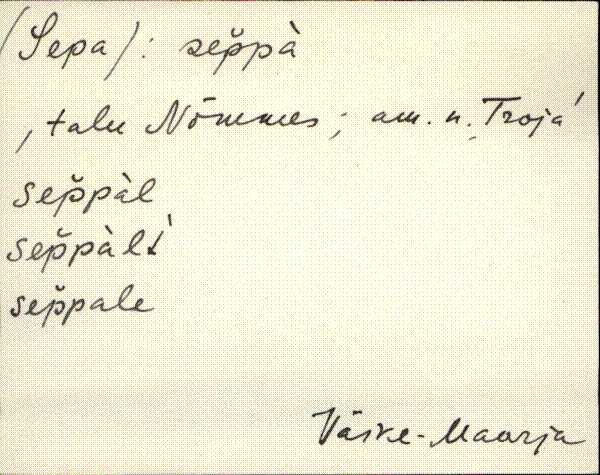 (Sepa): sep̆pà
, talu Nõmmes; am. n. ˏTroja'
sep̆pàl
sep̆pàlt'
sep̆pale
Väike-Maarja